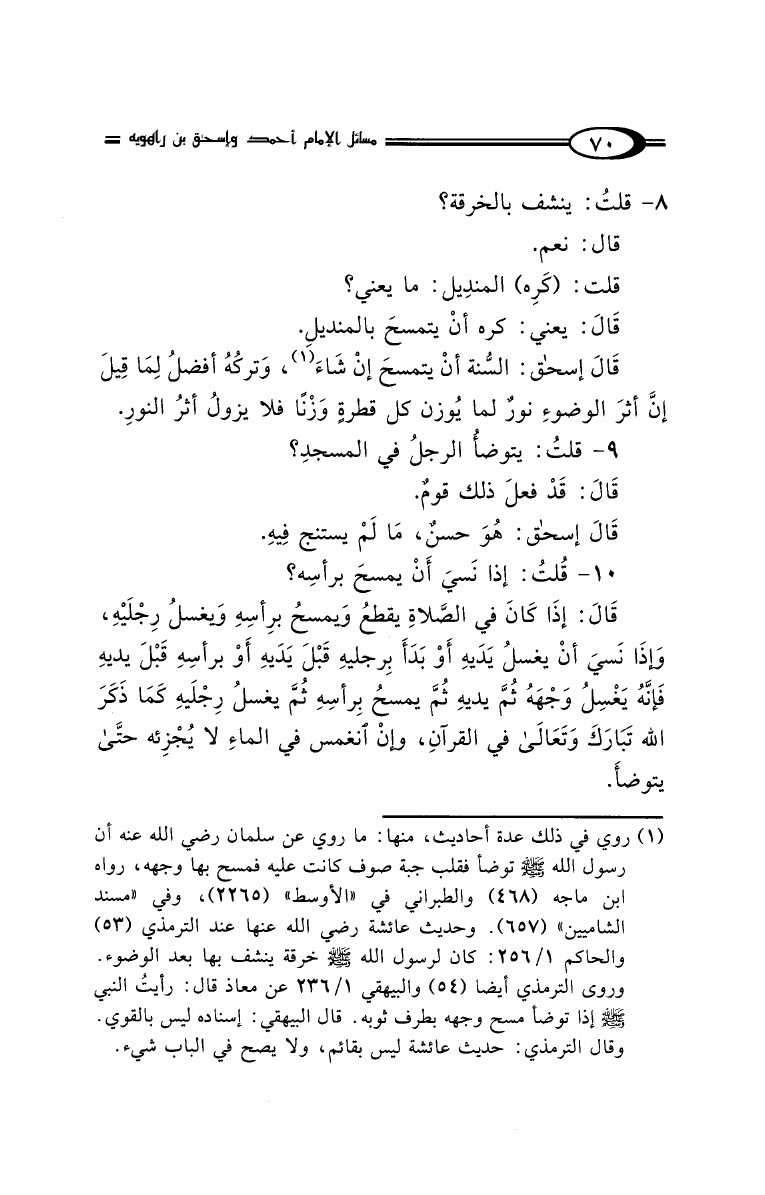 ٧٠ مسائل الإمام أحمد وإسحق بن راهويه
٨- قلتُ: ينشف بالخرقة؟
قال: نعم.
قلت: (كَرِه) المنديل: ما يعني؟
قَالَ: يعني: كره أنْ يتمسحَ بالمنديلِ.
قَالَ إسحٰق: السُّنة أنْ يتمسحَ إنْ شَاءَ(١)، وَتركُهُ أفضلُ لِمَا قِيلَ
إنَّ أثرَ الوضوءِ نورٌ لما يُوزن كل قطرةٍ وَزْنًا فلا يزولُ أثرُ النورِ.
٩- قلتُ: يتوضأُ الرجلُ في المسجدِ؟
قَالَ: قَدْ فعلَ ذلك قومٌ.
قَالَ إسحٰق: هُوَ حسنٌ، مَا لَمْ يستنج فِيهِ.
١٠- قُلتُ: إذا نَسيَ أَنْ يمسحَ برأسِه؟
قَالَ: إذَا كَانَ في الصَّلاةِ يقطعُ وَيمسحُ برِأسِهِ وَيغسلُ رِجْلَيْهِ،
وَإذَا نَسيَ أنْ يغسلَ يَدَيهِ أَوْ بَدَأَ بِرجليهِ قَبْلَ يَدَيهِ أَوْ برأسِهِ قَبْلَ يديهِ
فَإنَّهُ يَغْسِلُ وَجْهَهُ ثُمَّ يديهِ ثُمَّ يمسحُ بِرأسِهِ ثُمَّ يغسلُ رِجْلَيهِ كَمَا ذَكَرَ
الله تَبَارَكَ وَتَعَالَىٰ في القرآنِ، وإنْ ٱنغمس في الماءِ لا يُجْزِئه حتَّىٰ
يتوضأَ.
(١) روي في ذلك عدة أحاديث، منها: ما روي عن سلمان رضي الله عنه أن
رسول الله ﷺ توضأ فقلب جبة صوف كانت عليه فمسح بها وجهه، رواه
ابن ماجه (٤٦٨) والطبراني في «الأوسط» (٢٢٦٥)، وفي «مسند
الشاميين» (٦٥٧). وحديث عائشة رضي الله عنها عند الترمذي (٥٣)
والحاكم ١/ ٢٥٦: كان لرسول الله ﷺ خرقة ينشف بها بعد الوضوء.
وروى الترمذي أيضا (٥٤) والبيهقي ١/ ٢٣٦ عن معاذ قال: رأيتُ النبي
ﷺ إذا توضأ مسح وجهه بطرف ثوبه. قال البيهقي: إسناده ليس بالقوي.
وقال الترمذي: حديث عائشة ليس بقائم، ولا يصح في الباب شيء.